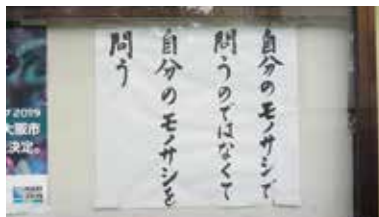 自分のモノサシで
問うのではなくて
自分のモノサシを
問う
2019
大阪市
決定。